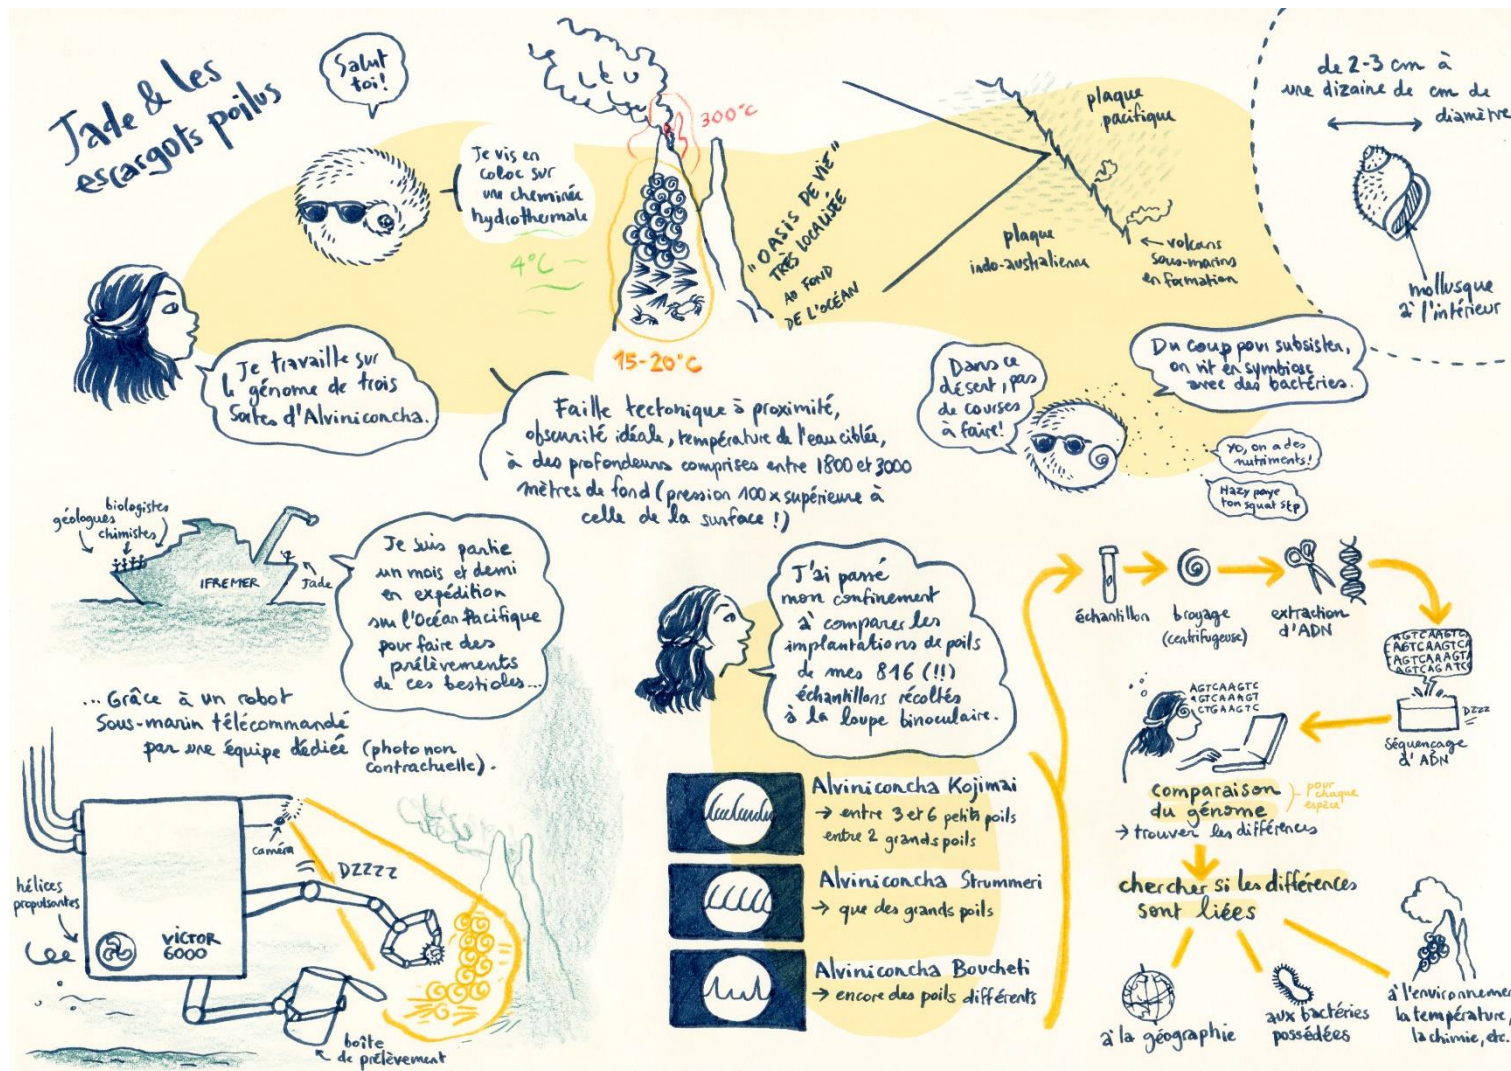 Jade & les
escargots poilus
Salut
toi!
Je vis en
coloc sur
une cheminée
hydrothermale
4°C
300°C
15-20°C
"OASIS DE VIE"
TRÈS LOCALISÉE
AU FOND
DE L'OCÉAN
plaque
pacifique
plaque
indo-australienne
← volcans
sous-marins
en formation
de 2-3 cm à
une dizaine de cm de
diamètre
mollusque
à l'intérieur
Je travaille sur
le génome de trois
sortes d'Alviniconcha.
Faille tectonique à proximité,
obscurité idéale, température de l'eau ciblée,
à des profondeurs comprises entre 1800 et 3000
mètres de fond (pression 100 x supérieure à
celle de la surface !)
Dans ce
désert, pas
de courses
à faire!
Du coup pour subsister,
on vit en symbiose
avec des bactéries.
Yo, on a des
nutriments!
Hazy paye
ton squat stp
géologues
biologistes
chimistes
IFREMER
Jade
Je suis partie
un mois et demi
en expédition
sur l'Océan Pacifique
pour faire des
prélèvements
de ces bestioles...
... Grâce à un robot
sous-marin télécommandé
par une équipe dédiée (photo non
contractuelle).
caméra
DZZZZ
hélices
propulsantes
VICTOR
6000
boîte
de prélèvement
J'ai passé
mon confinement
à comparer les
implantations de poils
de mes 816 (!!)
échantillons récoltés
à la loupe binoculaire.
Alviniconcha Kojimai
→ entre 3 et 6 petits poils
entre 2 grands poils
Alviniconcha Strummeri
→ que des grands poils
Alviniconcha Boucheti
→ encore des poils différents
échantillon
broyage
(centrifugeuse)
extraction
d'ADN
AGTCAAGTC
AGTCAAGTCA
AGTCAAAGTA
AGTCAGATCG
DZZZ
séquençage
d'ADN
AGTCAAGTC
AGTCAAAGT
CTGAAGTC
comparaison
du génome
pour
chaque
espèce
→ trouver les différences
chercher si les différences
sont liées
à la géographie
aux bactéries
possédées
à l'environnement
la température,
la chimie, etc.